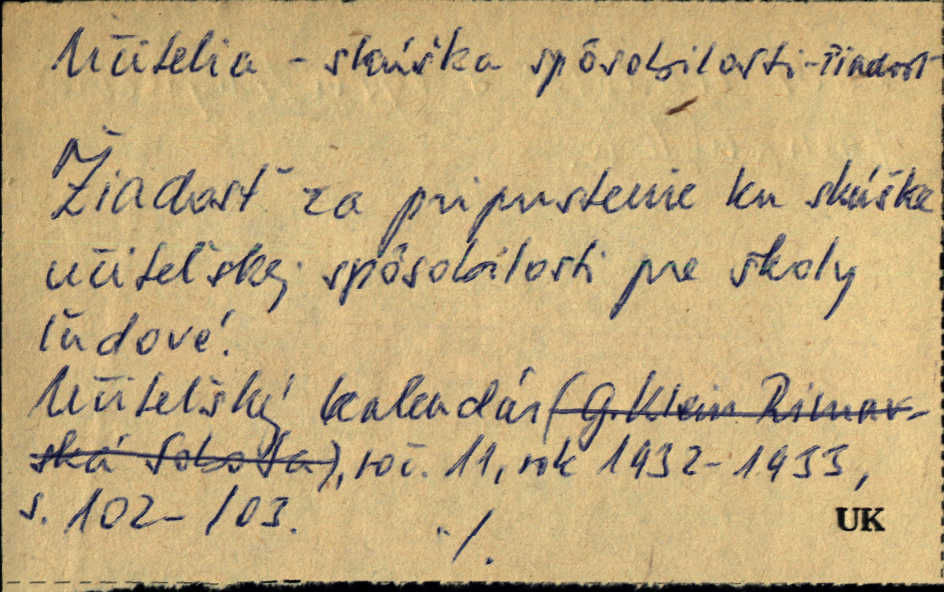 Učitelia - skúška spôsobilosti - žiadosť
Žiadosť za pripustenie ku skúške
učiteľskej spôsobilosti pre školy
ľudové.
Učiteľský kalendár (G. Klein Rimav-
ská Sobota), roč. 11, rok 1932-1933,
s. 102-103. ./.
UK